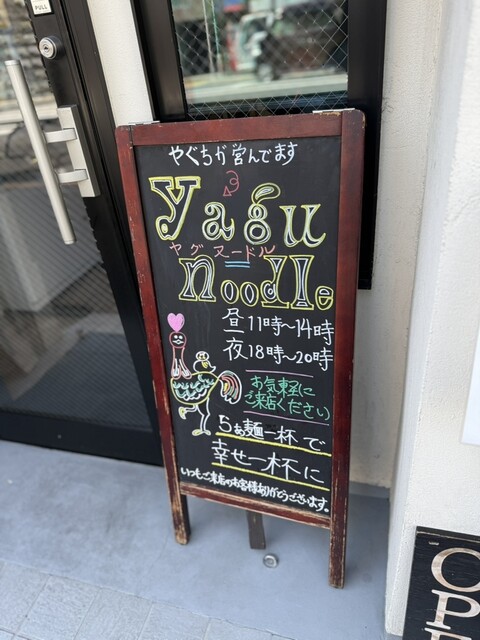 PULL
やぐちが営んでます
yagu
ヤグヌードル
noodle
昼11時〜14時
夜18時〜20時
お気軽に
ご来店ください
らぁ麺一杯で
幸せ一杯に
いつもご来店のお客様ありがとうございます。
OPE